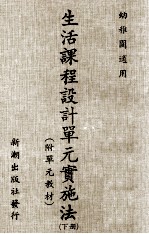 幼稚園適用
生活課程設計單元實施法(下冊)
(附單元教材)
新潮出版社發行